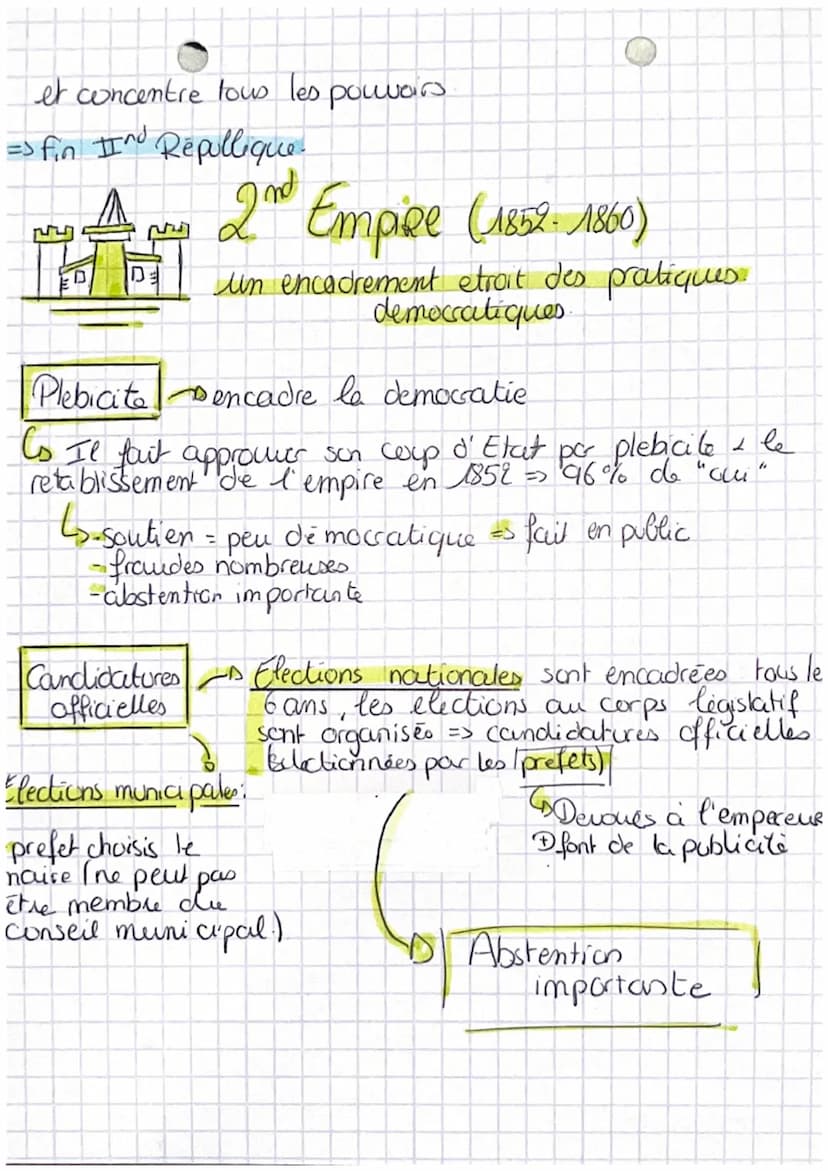 et concentre tous les pouvoirs
=> fin IInd Républlique.
2nd Empire (1852-1860)
un encadrement etroit des pratiques
democratiques.
Plebicite → encadre la democratie
↳ Il fait approuver son coup d'Etat par plebicite & le
retablissement de l'empire en 1852 => 96% de "oui"
↳ -soutien = peu démocratique => fait en public
-fraudes nombreuses
-abstention importante
Candidatures
officielles
→ Elections nationales sont encadrées tous le
6 ans, les elections au corps législatif
sont organiséo => candidatures officielles
selectionnées par les (prefets)
↳ Devoués à l'empereur
font de la publicité
Elections municipales:
prefet choisis le
maire (ne peut pas
être membre du
conseil municipal.)
Abstention
importante